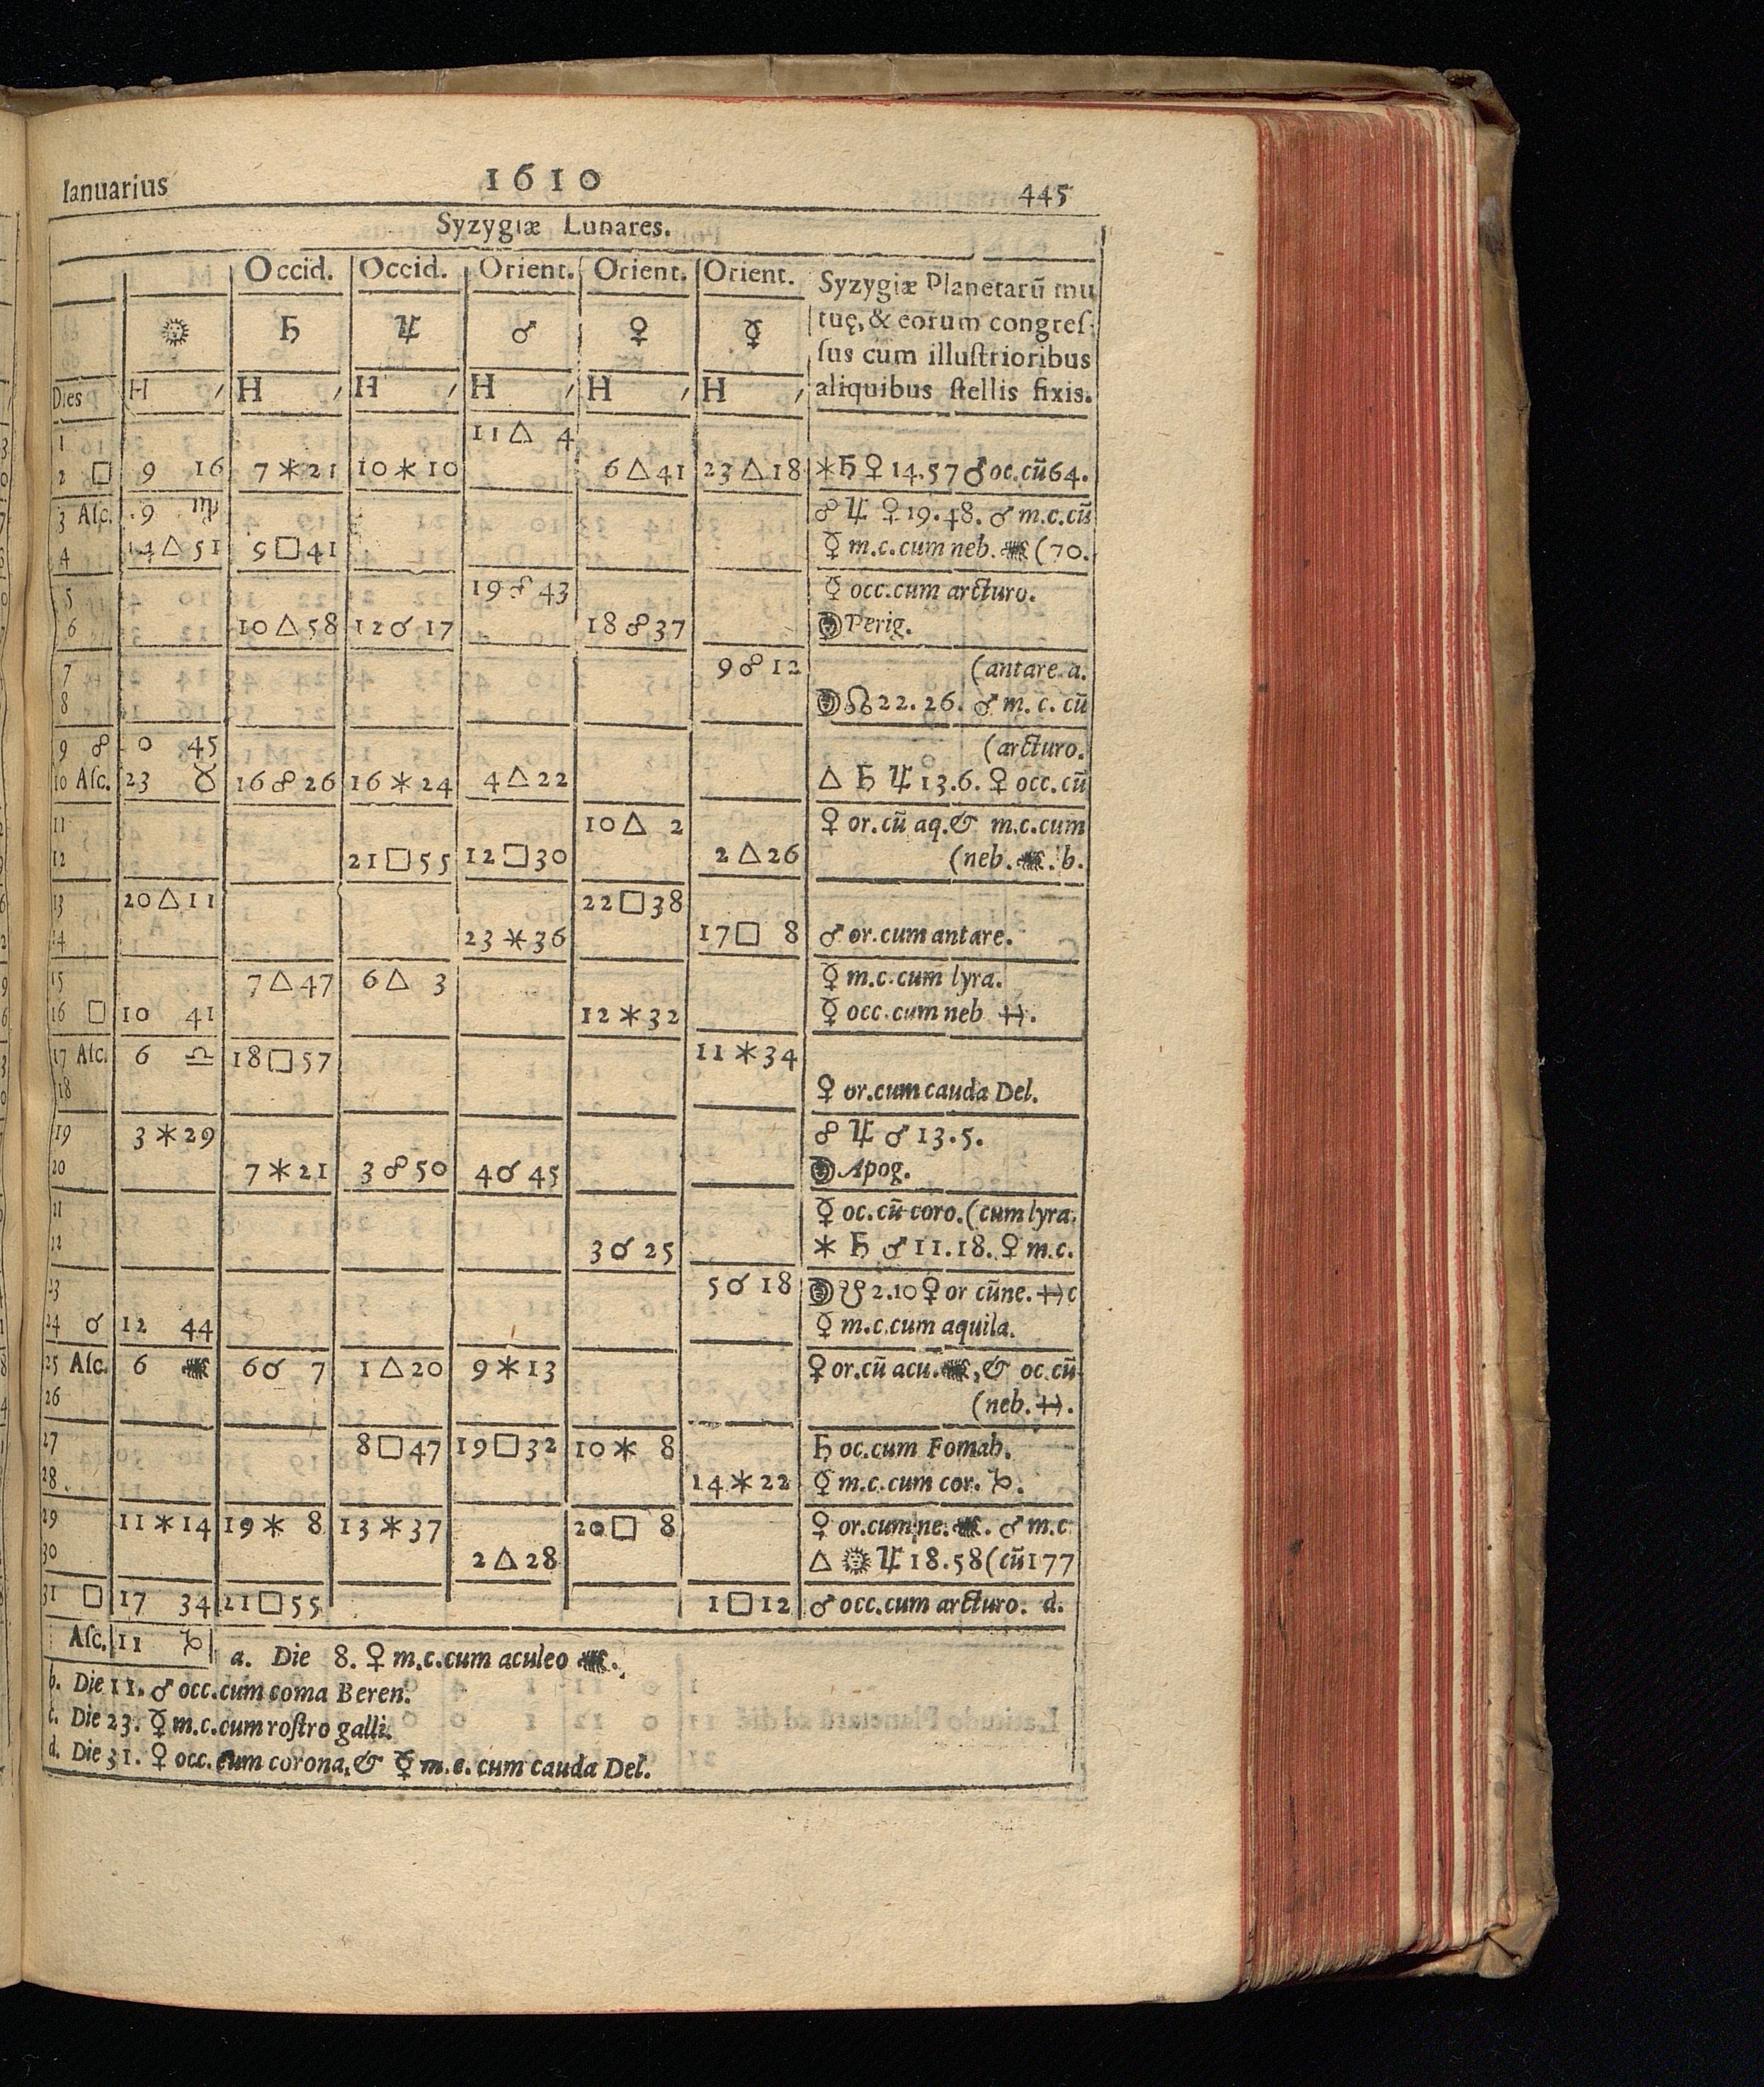 Ianuarius 1610 445
Syzygiæ Lunares.
Occid. Occid. Orient. Orient. Orient. Syzygiæ Planetarũ mu
☀ ♄ ♃ ♂ ♀ ☿ tuę, & eorum congreſ-
ſus cum illuſtrioribus
Dies H ′ H ′ H ′ H ′ H ′ H ′ aliquibus ſtellis fixis.
1 11 △ 4
2 □ 9 16 7 ⚹ 21 10 ⚹ 10 6 △ 41 23 △ 18 ⚹ ♄ ♀ 14.57 ♂ oc.cũ 64.
3 Aſc. 9 ♍ ☍ ♃ ♀ 19.48. ♂ m.c.cũ
4 14 △ 51 9 □ 41 ☿ m.c.cum neb. ♏ (70.
5 19 ☍ 43 ☿ occ.cum arcturo.
6 10 △ 58 12 ☌ 17 18 ☍ 37 ☽ Perig.
7 9 ☍ 12 (antare. a.
8 ☽ ☊ 22.26. ♂ m.c.cũ
9 ☍ 0 45 (arcturo.
10 Aſc. 23 ♉ 16 ☍ 26 16 ⚹ 24 4 △ 22 △ ♄ ♃ 13.6. ♀ occ.cũ
11 10 △ 2 ♀ or.cũ aq.& m.c.cum
12 21 □ 55 12 □ 30 2 △ 26 (neb. ♏. b.
13 20 △ 11 22 □ 38
14 23 ⚹ 36 17 □ 8 ♂ or.cum antare.
15 7 △ 47 6 △ 3 ☿ m.c.cum lyra.
16 □ 10 41 12 ⚹ 32 ☿ occ.cum neb ♐.
17 Aſc. 6 ♎ 18 □ 57 11 ⚹ 34
18 ♀ or.cum cauda Del.
19 3 ⚹ 29 ☍ ♃ ♂ 13.5.
20 7 ⚹ 21 3 ☍ 50 4 ☌ 45 ☽ Apog.
21 ☿ oc.cũ coro.(cum lyra.
22 3 ☌ 25 ⚹ ♄ ♂ 11.18. ♀ m.c.
23 5 ☌ 18 ☽ ☋ 2.10 ♀ or cũ ne. ♐ c
24 ☌ 12 44 ☿ m.c.cum aquila.
25 Aſc. 6 ♏ 6 ☌ 7 1 △ 20 9 ⚹ 13 ♀ or.cũ acu. ♏, & oc.cũ
26 (neb. ♐.
27 8 □ 47 19 □ 32 10 ⚹ 8 ♄ oc.cum Fomah.
28 14 ⚹ 22 ☿ m.c.cum cor. ♑.
29 11 ⚹ 14 19 ⚹ 8 13 ⚹ 37 20 □ 8 ♀ or.cum ne. ♏. ♂ m.c
30 2 △ 28 △ ☀ ♃ 18.58 (cũ 177
31 □ 17 34 21 □ 55 1 □ 12 ♂ occ.cum arcturo. d.
Aſc. 11 ♑ a. Die 8. ♀ m.c.cum aculeo ♏.
b. Die 11. ♂ occ.cum coma Beren.
c. Die 23. ☿ m.c.cum roſtro galli.
d. Die 31. ♀ occ.cum corona, & ☿ m.c. cum cauda Del.